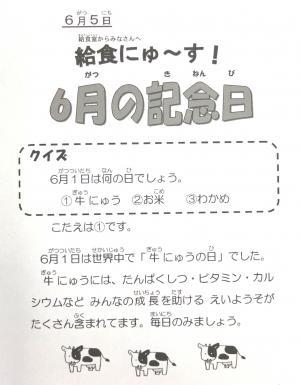 6月5日
給食室からみなさんへ
給食にゅ～す！
6月の記念日
クイズ
6月1日は何の日でしょう。
①牛にゅう ②お米 ③わかめ
こたえは①です。
6月1日は世界中で「牛にゅうの日」でした。
牛にゅうには、たんぱくしつ・ビタミン・カル
シウムなど みんなの成長を助ける えいようそが
たくさん含まれてます。毎日のみましょう。